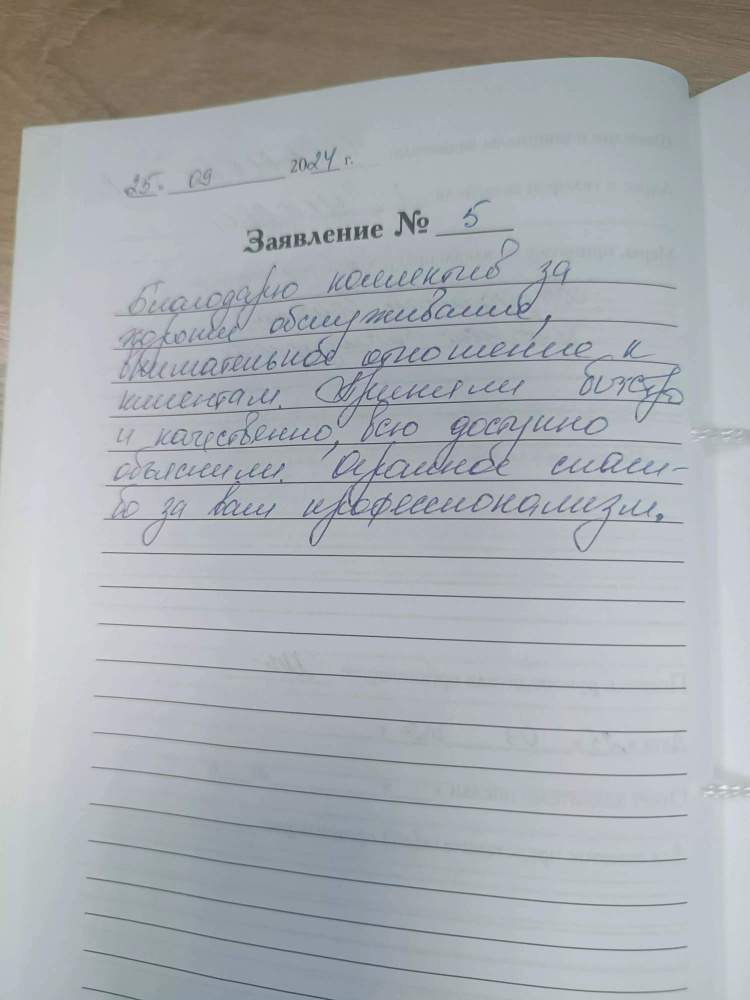 25. 09 2024 г.
Заявление № 5
Благодарю коллектив за
хорошее обслуживание,
внимательное отношение к
клиентам. Приняли быстро
и качественно, всю доступно
объяснили. Огромное спаси-
бо за ваш профессионализм.